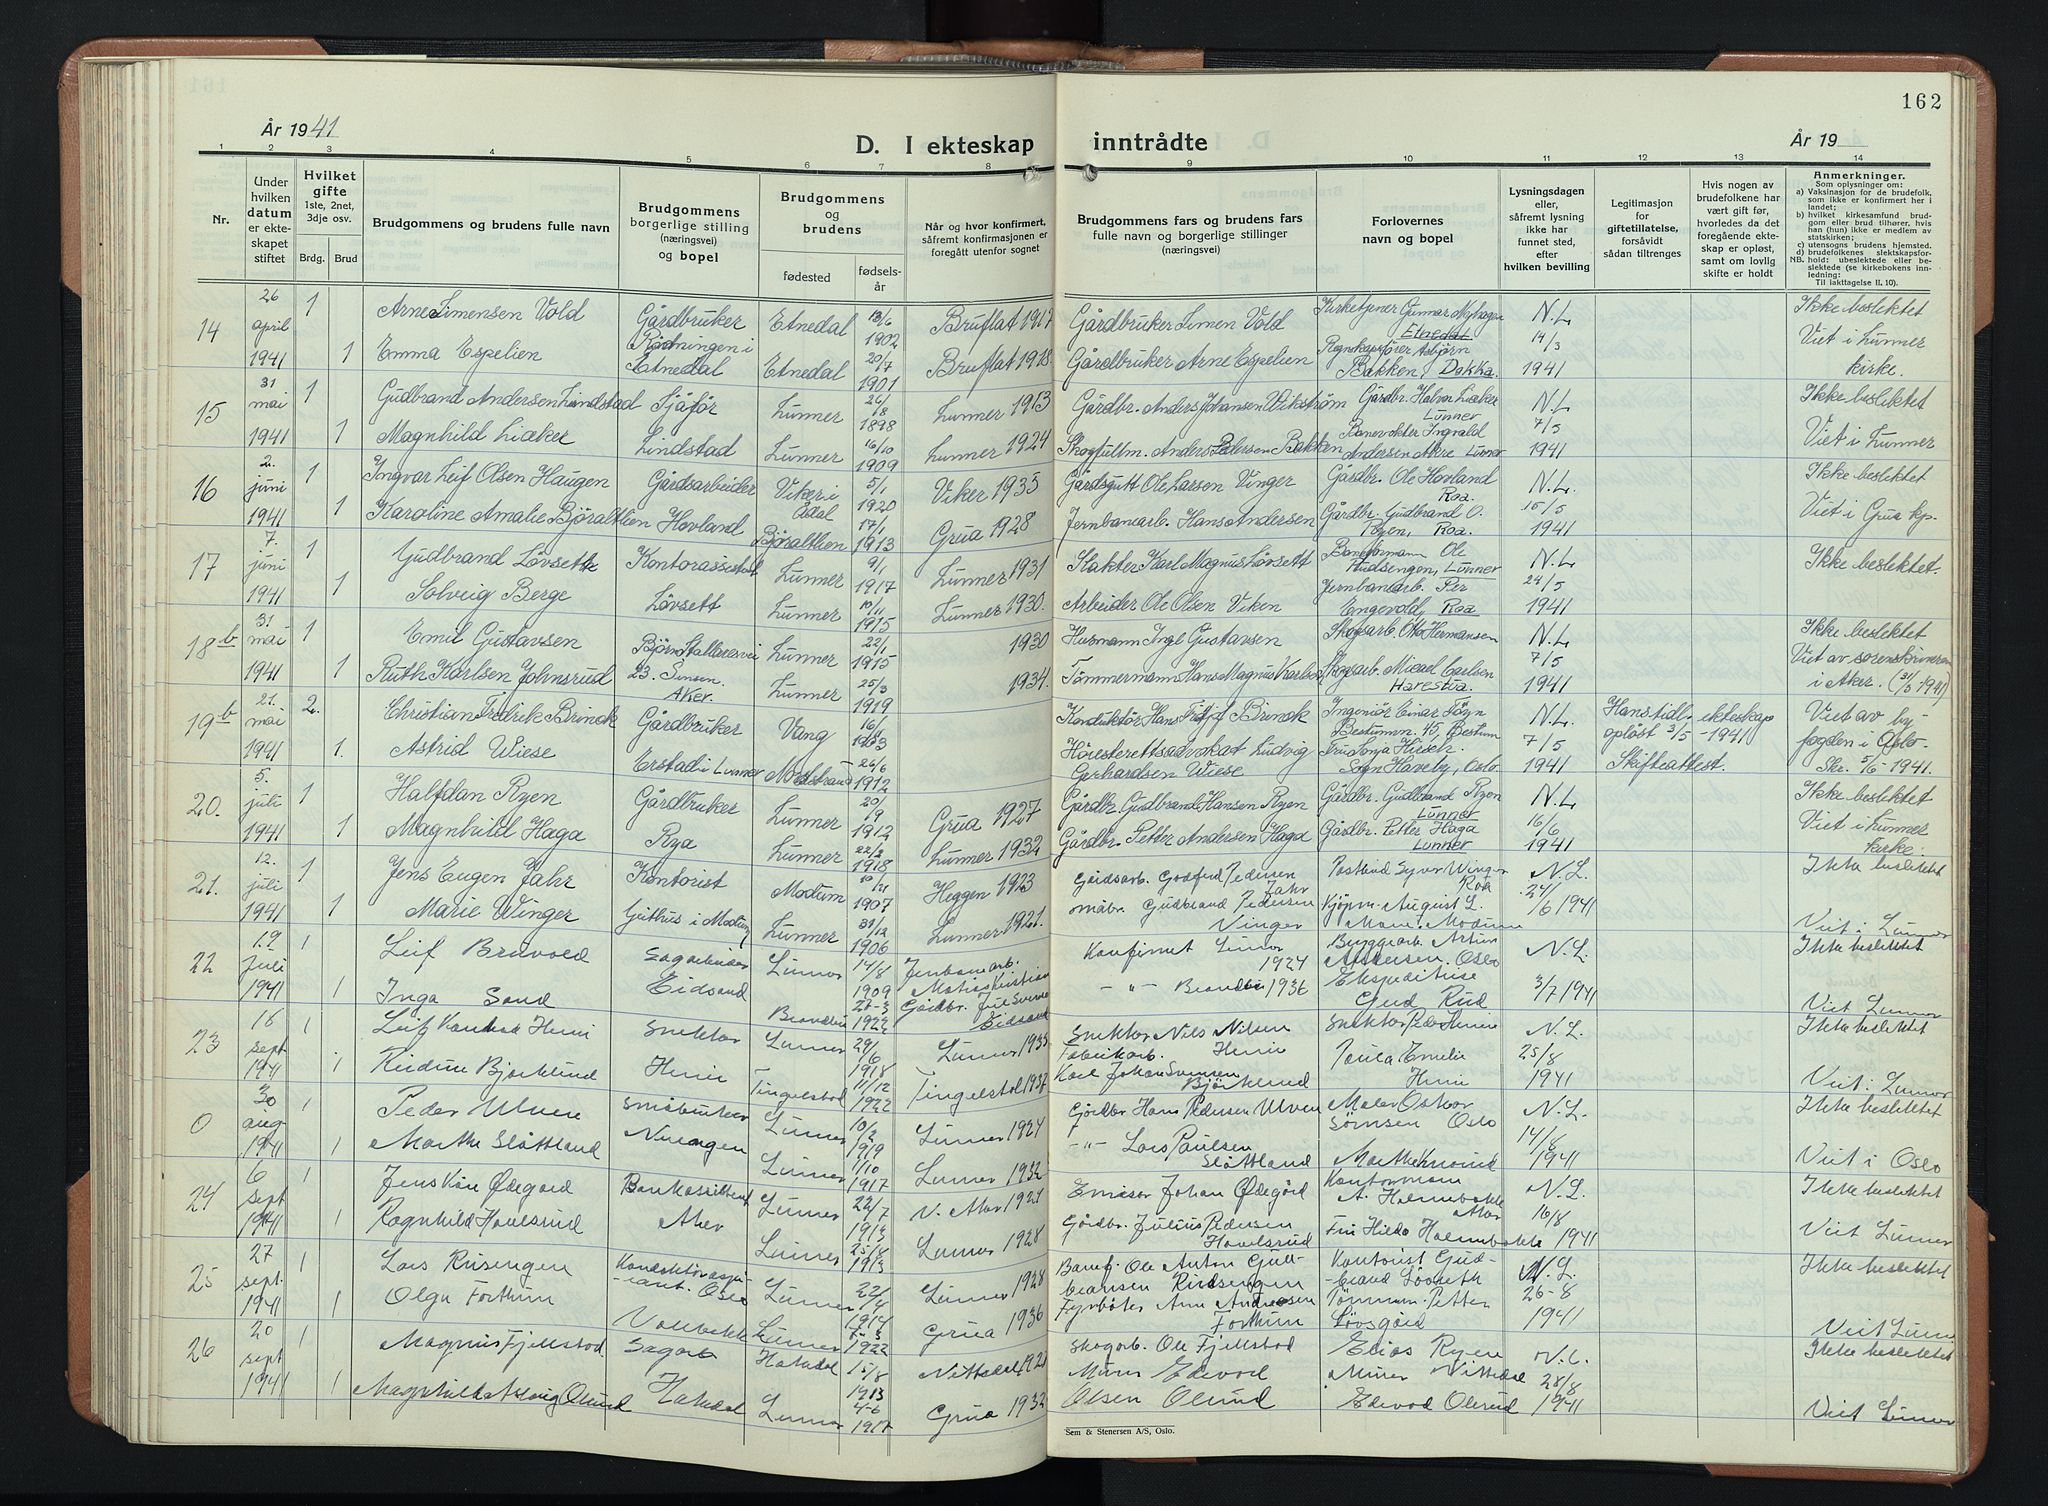 162
År 1941
D. I ekteskap inntrådte
År 19
1 2 3 4 5 6 7 8 9 10 11 12 13 14
Nr.
Under hvilken datum er ekteskapet stiftet
Hvilket gifte 1ste, 2net, 3dje osv.
Brdg. Brud
Brudgommens og brudens fulle navn
Brudgommens borgerlige stilling (næringsvei) og bopel
Brudgommens og brudens
fødested
fødsels-år
Når og hvor konfirmert, såfremt konfirmasjonen er foregått utenfor sognet
Brudgommens fars og brudens fars fulle navn og borgerlige stillinger (næringsvei)
Forlovernes navn og bopel
Lysningsdagen eller, såfremt lysning ikke har funnet sted, efter hvilken bevilling
Legitimasjon for giftetillatelse, forsåvidt sådan tiltrenges
Hvis nogen av brudefolkene har vært gift før, hvorledes da det foregående ekteskap er opløst, samt om lovlig skifte er holdt
Anmerkninger.
Som oplysninger om:
a) Vaksinasjon for de brudefolk, som ikke er konfirmert her i landet;
b) hvilket kirkesamfund brudgom eller brud tilhører, hvis han (hun) ikke er medlem av statskirken;
c) utensogns brudens hjemsted.
d) brudefolkenes slektskapsforhold: ubeslektede eller beslektede (se kirkebokens innledning;
NB.
Til iakttagelse II. 10).
14 26 april 1941 1 Arne Simensen Vold Gårdbruker Etnedal 13/6 1902 Bruflat 1917 Gårdbruker Simen Vold Kirketjener Gunnar Myhagen Etnedal N.L. 14/3 1941 Ikke beslektet
1 Emma Espelien i Etnedal Etnedal 20/7 1901 Bruflat 1918 Gårdbruker Arne Espelien Regnskapsfører Asbjørn Bakken, Dokka. Viet i Lunner kirke.
15 31 mai 1941 1 Gudbrand Andersen Lindstad Sjåfør Lunner 26/8 1898 Lunner 1913 Gårdbr. Anders Johansen Vikström Gårdbr. Halvor Liaker Lunner N.L. 7/5 1941 Ikke beslektet
1 Magnhild Liaker Lindstad Lunner 16/10 1909 Lunner 1924 Anders Pedersen Bakken Banevokter Ingvald Andersen Lunner Viet i Lunner
16 2. juni 1941 1 Ingvar Leif Olsen Haugen Gårdsarbeider Viker i Odal 5/1 1920 Viker 1935 Gårdsgutt Ole Larsen Vinger Gårdbr. Ole Hovland Roa. N.L. 15/5 1941 Ikke beslektet
1 Karoline Amalie Björalthen Hovland Björalthen 17/1 1913 Grua 1928 Jernbanearb. Hans Andersen Gårdbr. Gudbrand O. Ryen, Roa. Viet i Grua kp.
17 7. juni 1941 1 Gudbrand Lövseth Kontorassistent Lunner 9/1 1917 Lunner 1931 Slakter Karl Magnus Lövsett Baneformann Ole Lunner N.L. 24/5 1941 Ikke beslektet.
1 Solveig Berge Lövsett Lunner 10/11 1915 Lunner 1930. Arbeider Ole Olsen Viken Jernbanearb. Per Engevold, Roa
18b 31. mai 1941 1 Emil Gustavsen Björn Stallaresvei Lunner 22/1 1915 1930 Husmann Ingl Gustavsen Skogsarb. Otto Hermansen N.L. 7/5 1941 Ikke beslektet
1 Ruth Karlsen Johnsrud 23. Sinsen Aker. Lunner 25/3 1919 1934. Tömmermann Hans Magnus Karlsen Skogsarb. Micael Carlsen Harestua. Viet av sorenskriveren i Aker. (31/5 1941)
19b 21. mai 1941 2. Christian Fredrik Brinck Gårdbruker Vang 16/11 Konduktör Hans Brinck Ingeniör Einar Bestumv. 45, Bestum N.L. 7/5 1941 Hans tidl. ekteskap oplöst 3/5 - 1941 Skifteattest. Viet av byfogden i Oslo. Skr. 5/6 - 1941.
1. Astrid Wiese Erstad i Lunner 26/6 1912 Höiesterettsadvokat Ludvig Gerhardsen Wiese Sogn Haveby, Oslo.
20. 5. juli 1941 1 Halfdan Ryen Gårdbruker Lunner 20/9 1912 Grua 1927 Gårdbr. Gudbrand Hansen Ryen Gårdbr. Gudbrand Ryen Lunner N.L 16/6 1941 Ikke beslektet
1 Magnhild Haga Roa Lunner 22/2 1918 Lunner 1932 Gårdbr. Petter Andersen Haga Gårdbr. Petter Haga Lunner Viet i Lunner kirke.
21. 12. juli 1941 1 Jens Eugen Jahr Kontorist Modum 10/21 1907 Heggen 1923 Gårdsarb. Godfred Pedersen Jahr Winger Roa N.L. 24/6 1941 Ikke beslektet
1 Marie Winger Guthus i Modum Lunner 31/12 1906 Lunner 1921. Småbr. Gudbrand Pedersen Vinger Kjöpm. August L. Modum Viet i Lunner
22 19 juli 1941 1 Leif Bruvold Sagarbeider Lunner 14/8 1909 Jernbanearb. Konfirmert Lunner 1924 Bryggearb. Artur Andersen. Oslo N.L. 3/7 1941 Ikke beslektet
1 Inga Sand Eidsand Brandbu 27-3 1922 Gårdbr. Eidsand -"- Brandbu 1936 Ekspeditrise Gud Rud Viet Lunner
23 16 sept 1941 1 Leif Henni Snekker Lunner 29/6 1918 Lunner 1933 Snekker Nils Nilsen Henni Snekker Peder Henni N.L. 25/8 1941 Ikke beslektet
1 Bjørklund Tingelstad 11/12 1922 Tingelstad 1937 Fabrikarb. Karl Johan Svensen Björklund Paula Emelie Henni Viet i Lunner
0 30 aug 1941 1 Peder Ulven Småbruker Lunner 10/2 1919 Lunner 1924 Gårdbr Hans Pedersen Ulven Maler Oskar Sørnsen Oslo N.L. 14/8 1941 Ikke beslektet
1 Marthe Slåttland Lunner 1/10 1917 Lunner 1932 -"- Lars Paulsen Slåttland Marthe Viet i Oslo
24 6 sept 1941 1 Jens Kåre Ødegård Bankassistent Lunner 22/7 1913 V. Aker 1927 Emisær Johan Ødegård Kontormann A. Holmbakke Aker N.L. 16/8 1941 Ikke beslektet
1 Ragnhild Hovelsrud Aker Lunner 25/8 1913 Lunner 1928 Gårdbr. Julius Pedersen Hovelsrud Fru Hilda Holmbakke Viet Lunner
25 27 sept. 1941 1 Lars Rusengen Konduktöraspirant. Oslo Lunner 22/4 1914 Lunner 1928 Banef. Ole Anton Gulbransen Kontorist Gudbrand Løvseth N.L. 26-8 1941 Ikke beslektet
1 Olga Forthun Lunner 1922 Grua 1936 Fyrbøter Arne Andresen Forthun Tømmerm. Petter Løvsgård Viet Lunner
26 20 sept 1941 1 Magnus Fjellstad Sagarb Hakadal 15/8 1913 Nittedal 192 Skogarb. Ole Fjellstad Elias Ryen N.L. 28/8 1941 Ikke beslektet
1 Magnhild Aslaug Olerud Hakadal Lunner 4-6 1917 Grua 1932 Murer Edvard Olsen Olerud Murer Edvard Olerud Viet Lunner
Sem & Stenersen A/S, Oslo.